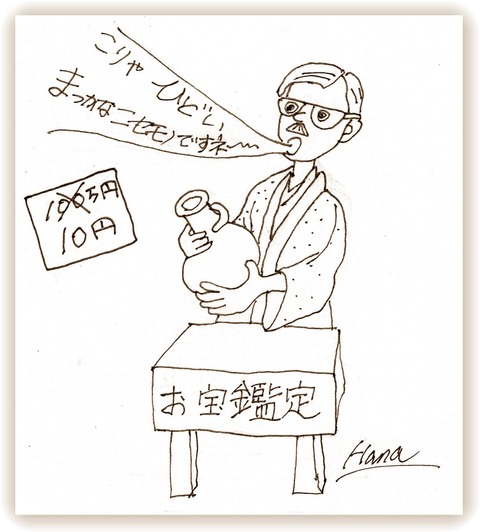 こりゃ ひどい
まっかなニセモノですネ〜
100万円
10円
お宝鑑定
Hana